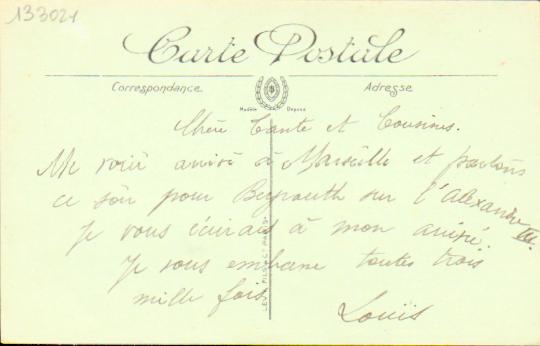 133024
Carte Postale
Correspondance
Adresse
Modèle Déposé
Chère Tante et Cousines.
Me voici arrivé à Marseille et partons
ce soir pour Beyrouth sur l'Alexandre III.
Je vous écrirais à mon arrivé.
Je vous embrasse toutes trois
mille fois
Louis
LEVY FILS & Cie PARIS